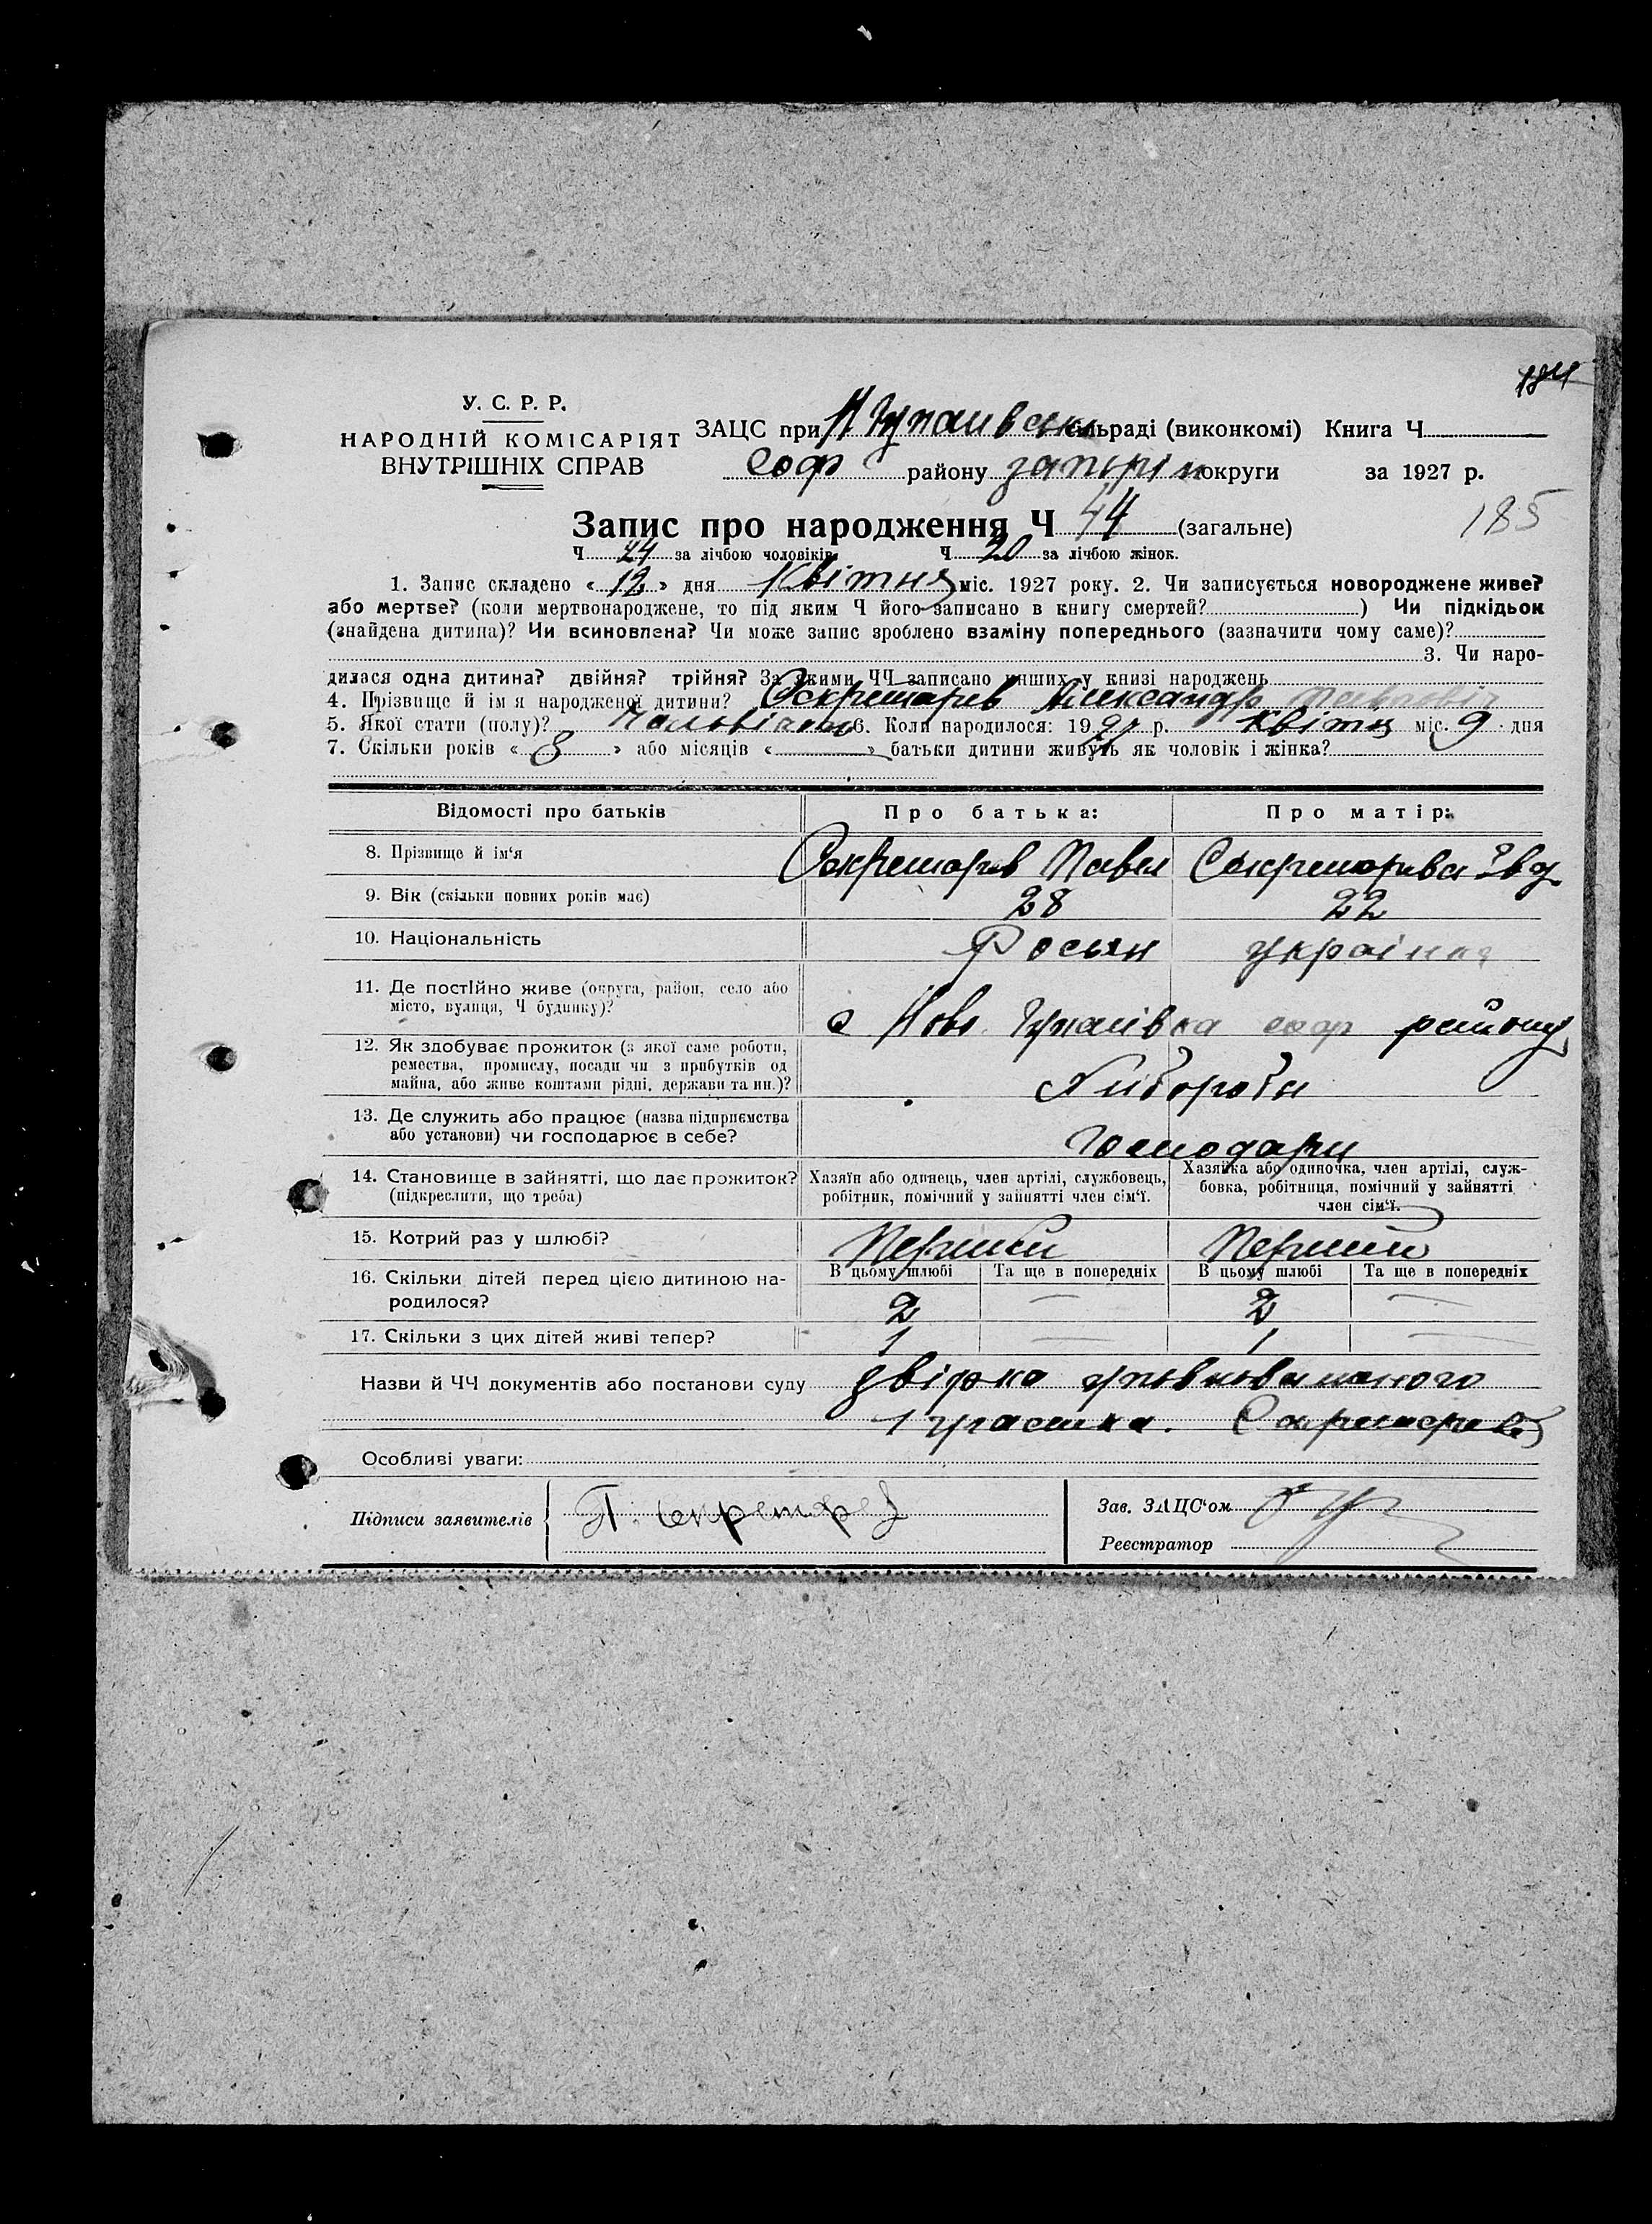 184
У. С. Р. Р.
НАРОДНІЙ КОМІСАРІЯТ
ВНУТРІШНІХ СПРАВ
ЗАЦС при сільраді (виконкомі) Книга Ч
Соф району округи за 1927 р.
185
Запис про народження Ч 44 (загальне)
Ч 24 за лічбою чоловіків Ч 20 за лічбою жінок.
1. Запис складено « 12 » дня Квітня міс. 1927 року. 2. Чи записується новороджене живе?
або мертве? (коли мертвонароджене, то під яким Ч його записано в книгу смертей? ) Чи підкідьок
(знайдена дитина)? Чи всиновлена? Чи може запис зроблено взаміну попереднього (зазначити чому саме)?
3. Чи наро-
дилася одна дитина? двійня? трійня? За якими ЧЧ записано инших у книзі народжень
4. Прізвище й ім'я народженої дитини? Александр Павлович
5. Якої стати (полу)? 6. Коли народилося: 1927 р. Квітня міс. 9 дня
7. Скільки років « 8 » або місяців « » батьки дитини живуть як чоловік і жінка?
Відомості про батьків Про батька: Про матір:
8. Прізвище й ім'я Павел
9. Вік (скільки повних років має) 28 22
10. Національність Росьян україна
11. Де постійно живе (округа, район, село або
місто, вулиця, Ч будинку)? с Ново соф району
12. Як здобуває прожиток (з якої саме роботи,
ремества, промислу, посади чи з прибутків од
майна, або живе коштами рідні, держави та ин.)?
13. Де служить або працює (назва підприємства
або установи) чи господарює в себе? Господари
14. Становище в зайнятті, що дає прожиток? Хазяїн або одинець, член артілі, службовець, Хазяйка або одиночка, член артілі, служ-
(підкреслити, що треба) робітник, помічний у зайнятті член сім'ї. бовка, робітниця, помічний у зайнятті
член сім'ї.
15. Котрий раз у шлюбі? Перший Перший
16. Скільки дітей перед цією дитиною на- В цьому шлюбі Та ще в попередніх В цьому шлюбі Та ще в попередніх
родилося? 2 — 2 —
17. Скільки з цих дітей живі тепер? 1 — 1 —
Назви й ЧЧ документів або постанови суду
Особливі уваги:
Підписи заявителів Зав. ЗАЦС'ом
Реєстратор